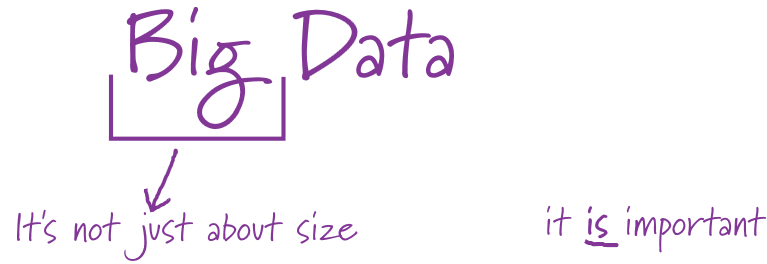 Big Data
It's not just about size
it is important